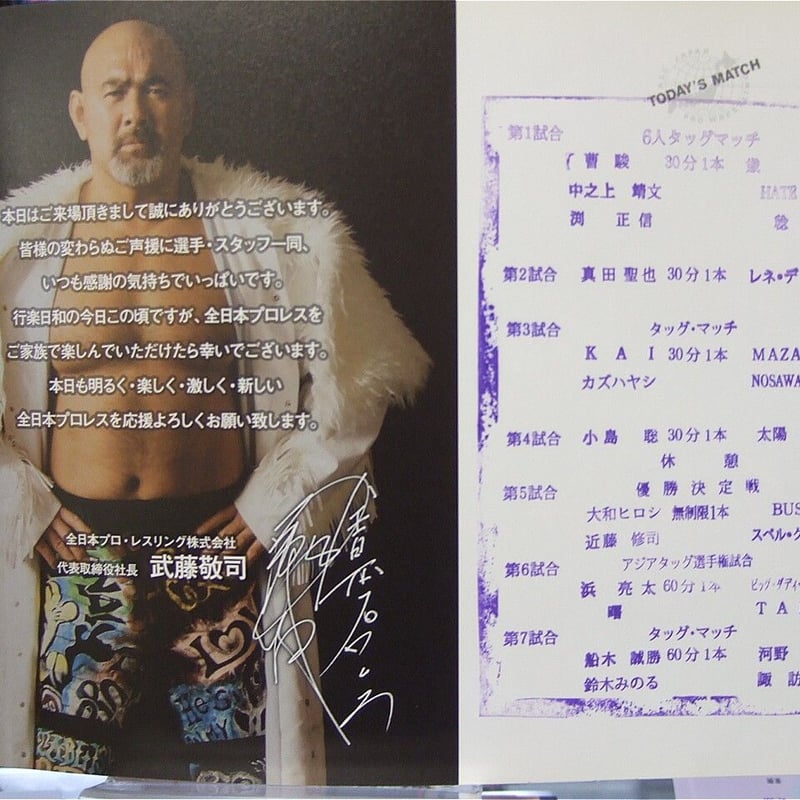 本日はご来場頂きまして誠にありがとうございます。
皆様の変わらぬご声援に選手・スタッフ一同、
いつも感謝の気持ちでいっぱいです。
行楽日和の今日この頃ですが、全日本プロレスを
ご家族で楽しんでいただけたら幸いでございます。
本日も明るく・楽しく・激しく・新しい
全日本プロレスを応援よろしくお願い致します。
全日本プロ・レスリング株式会社
代表取締役社長 武藤敬司
TODAY'S MATCH
第1試合 6人タッグマッチ
曹 駿 30分1本
中之上 靖文 HATE
渕 正信 稔
第2試合 真田聖也 30分1本 レネ・デ
第3試合 タッグ・マッチ
KAI 30分1本 MAZA
カズハヤシ NOSAWA
第4試合 小島 聡 30分1本 太陽
休憩
第5試合 優勝決定戦
大和ヒロシ 無制限1本 BUS
近藤 修司 スペル・
第6試合 アジアタッグ選手権試合
浜 亮太 60分1本 ビッグ・ダディ
曙 TA
第7試合 タッグ・マッチ
船木 誠勝 60分1本 河野
鈴木みのる 諏訪